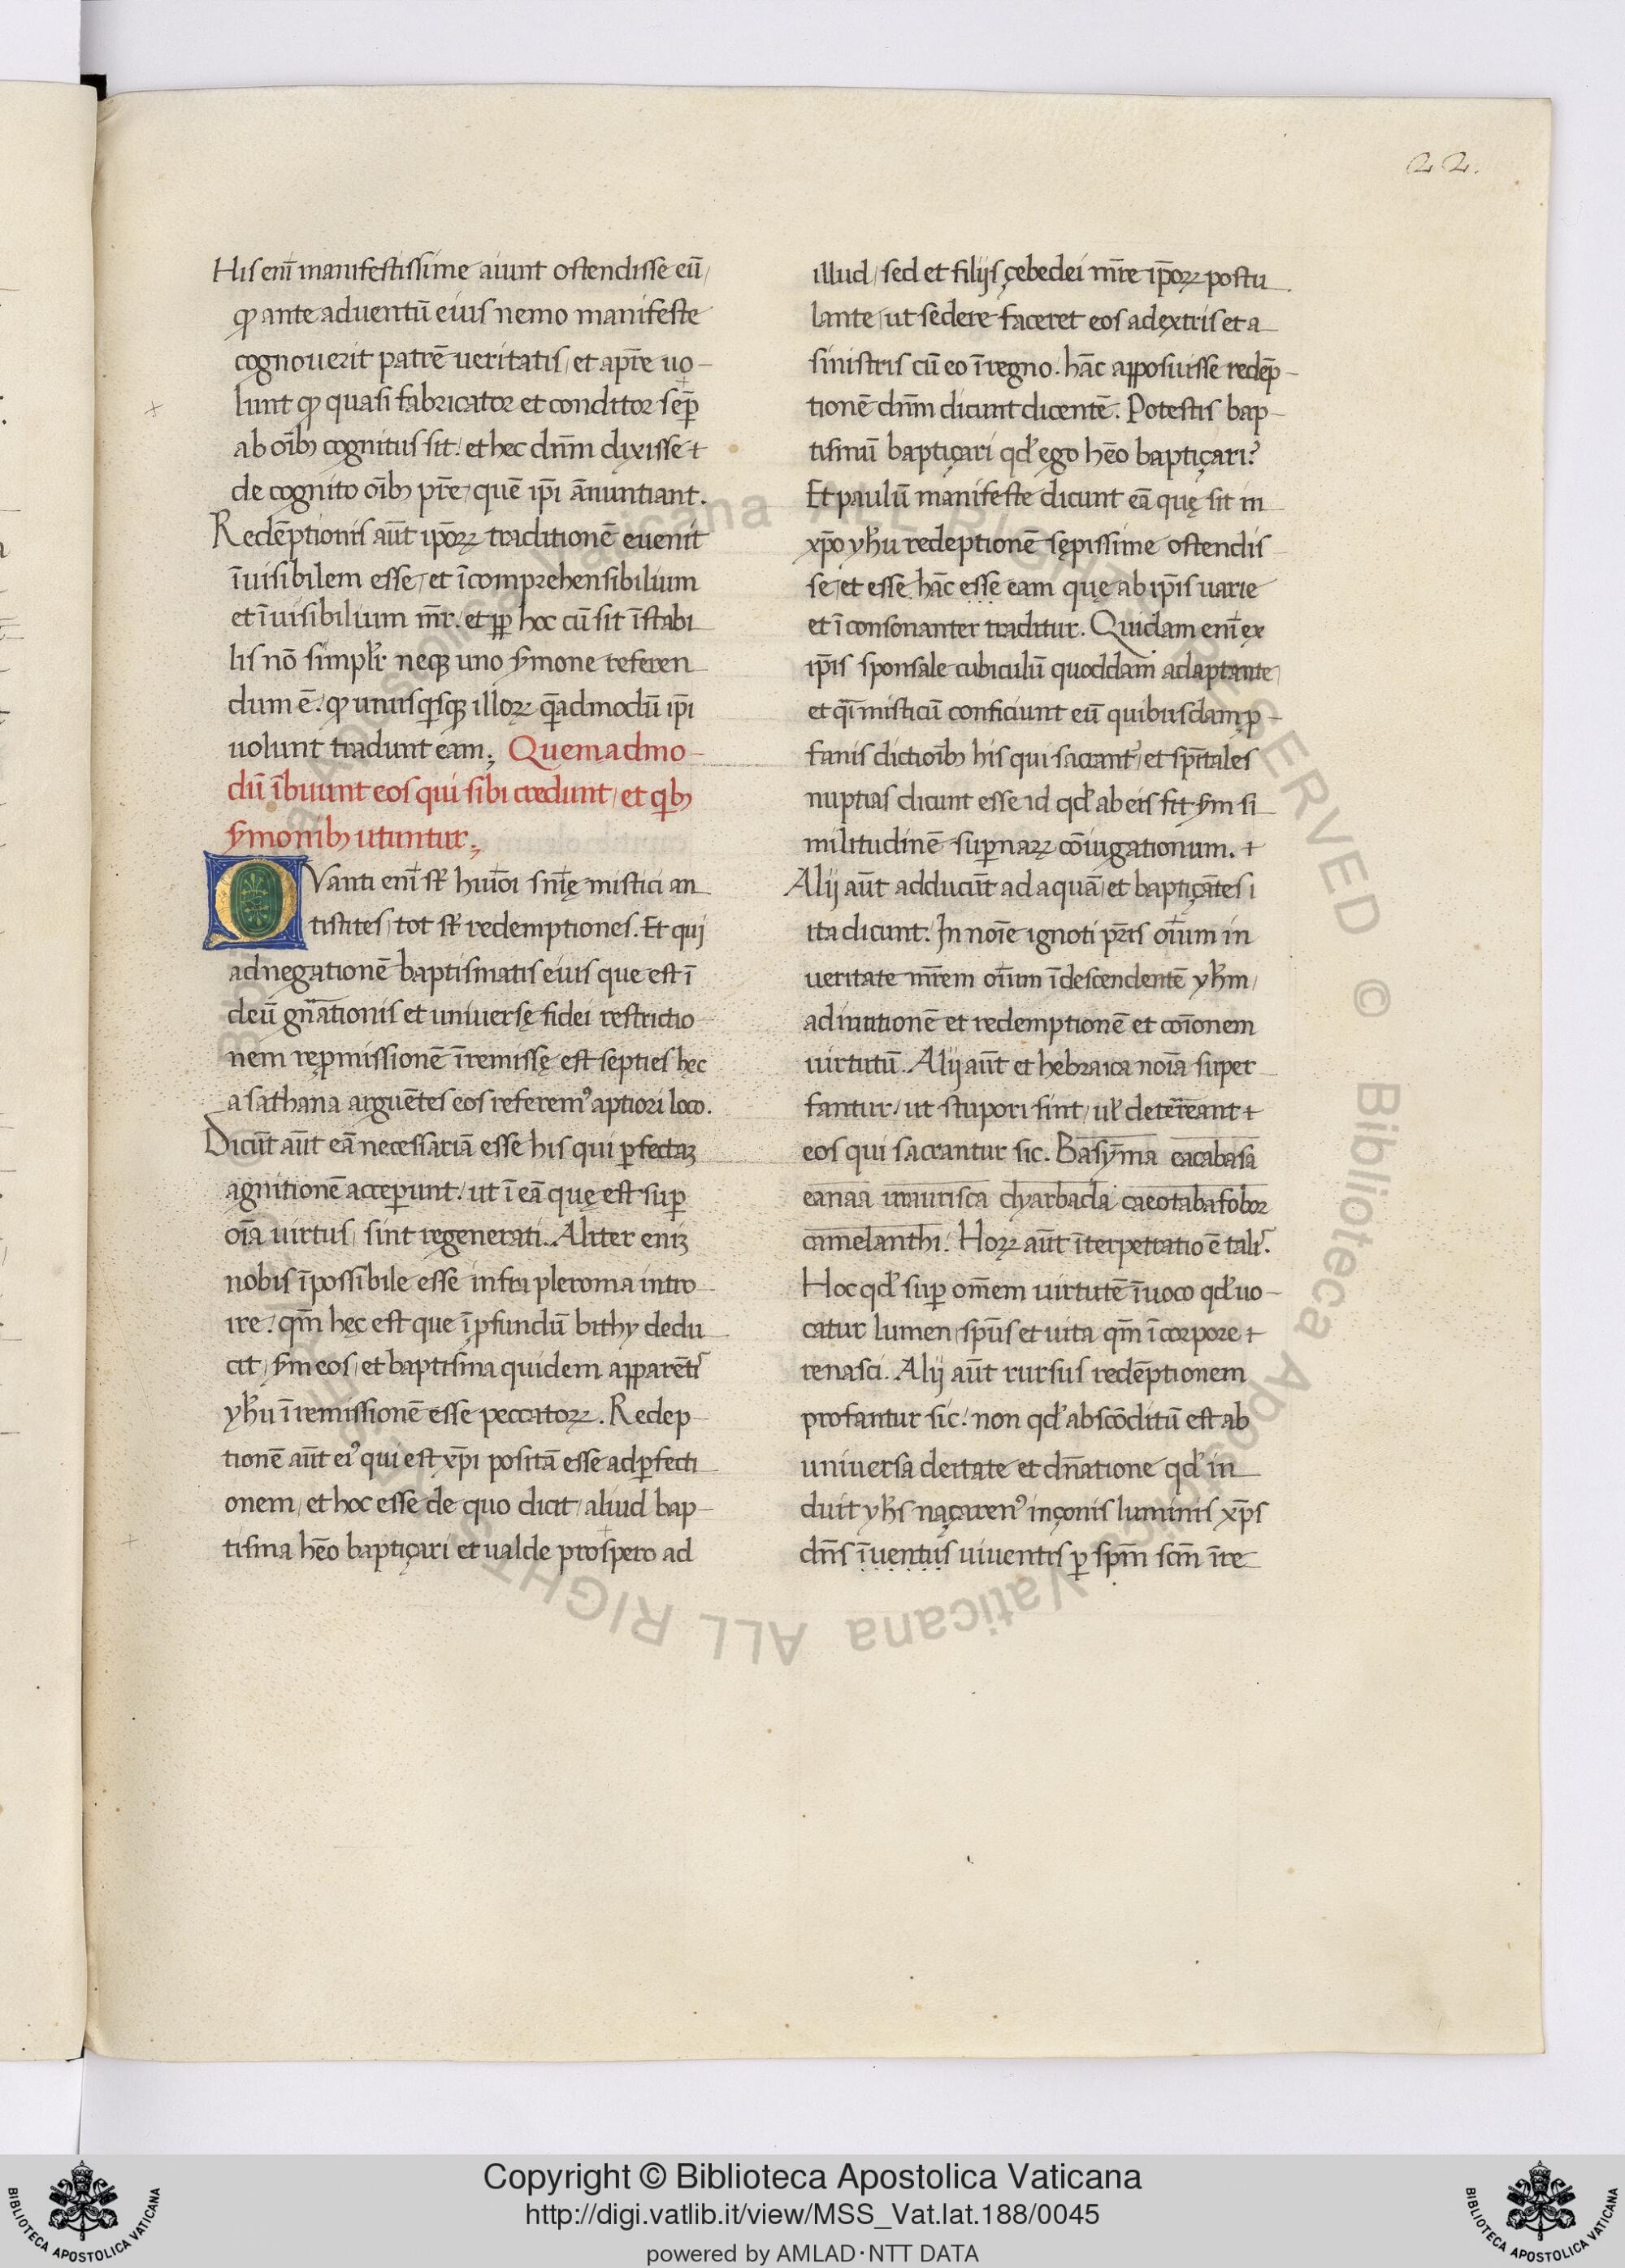 22.
His enī manifestissime aiunt ostendisse eū/
ꝙ ante aduentū eius nemo manifeste
cognouerit patrē ueritatis/ et apr̄e uo-
lunt ꝙ quasi fabricator et conditor sēp
ab oībꝫ cognitus sit: et hec dn̄m dixisse
de cognito oībꝫ pr̄e/ quē ip̄i ānuntiant.
Redēptionis aūt ip̄oꝝ traditionē euenit
īuisibilem esse/ et īcomprehensibilium
et īuisibilium mr̄. et ꝓp hoc cū sit īstabi
lis nō simplr̄ neqꝫ uno sermone referen
dum ē: ꝙ unusqisqꝫ illoꝝ q̄admodū ip̄i
uolunt tradunt eam; Quemadmo-
dū ībuunt eos qui sibi credunt/ et qibꝫ
sermonibꝫ utuntur;
QVanti enī st̄ hui̅oi sn̄ię mistici an
tistites/ tot st̄ redemptiones. Et qui
adnegationē baptismatis eius que est ī
deū gn̄ationis et uniuersę fidei restrictio
nem reꝑmissionē īremissę est septies hęc
a sathana arguētes eos referemꝰ aptiori loco.
Dicūt aūt eā necessariā esse his qui ꝑfectaꝫ
agnitionē acceꝑunt: ut ī eā quę est suꝑ
oīa uirtus/ sint regenerati. Aliter eniꝫ
nobis īpossibile esse infra pleroma intro-
ire: qm̄ hęc est que ī ꝓfundū bithy dedu
cit/ sm eos/ et baptisma quidem apparētis
yh̄u ī remissionē esse peccatoꝝ. Redep-
tionē aūt eiꝰ qui est xp̄i positā esse adꝑfecti
onem/ et hoc esse de quo dicit/ aliud bap-
tisma hēo baptiçari et ualde prospero ad
illud/ sed et filijs çebedei mr̄e ip̄oꝝ postu
lante/ ut sedere faceret eos adextris et a
sinistris cū eo ī regno. hāc apposuisse redēp-
tionē dn̄m dicunt dicentē. Potestis bap-
tismū baptiçari qd̓ ego hēo baptiçari?
Et paulū manifeste dicunt eā quę sit in
xp̄o yh̄u redeptionē sępissime ostendis
se/ et esse hāc esse eam quę ab ip̄is uarie
et īconsonanter traditur. Quidam enī ex
ip̄is sponsale cubiculū quoddam adaptante/
et q̄i misticū conficiunt eū quibusdam ꝓ-
fanis dictioībꝫ his qui sacrant̄/ et spītales
nuptias dicunt esse id qd̓ ab eis fit sm si
militudinē suꝑnaꝝ cōiugationum.
Alij aūt adducūt ad aquā/ et baptiçātes
ita dicunt: In noīe ignoti pr̄is oīum in
ueritate mr̄em oīum ī descendentē yh̄m/
ad unitionē et redemptionē et coīonem
uirtutū. Alij aūt et hebraica noīa super
fantur: ut stupori sint/ ul̓ deterreant
eos qui sacrantur sic. Basyma eacabasa
eanaa irraurisca dyarbada caeotabafobor
camelanthi: Hoꝝ aūt īterpetratio ē talis.
Hoc qd̓ suꝑ om̄em uirtutē īuoco qd̓ uo-
catur lumen/ spūs et uita qm̄ ī corpore
renasci. Alij aūt rursus redēptionem
profantur sic: non qd̓ abscōditū est ab
uniuersa deitate et dn̄atione qd̓ in
duit yh̄s naçarenꝰ inçonis luminis xp̄s
dn̄s īuentus uiuentis ꝑ spm̄ scm̄ īre
Copyright © Biblioteca Apostolica Vaticana
http://digi.vatlib.it/view/MSS_Vat.lat.188/0045
powered by AMLAD·NTT DATA